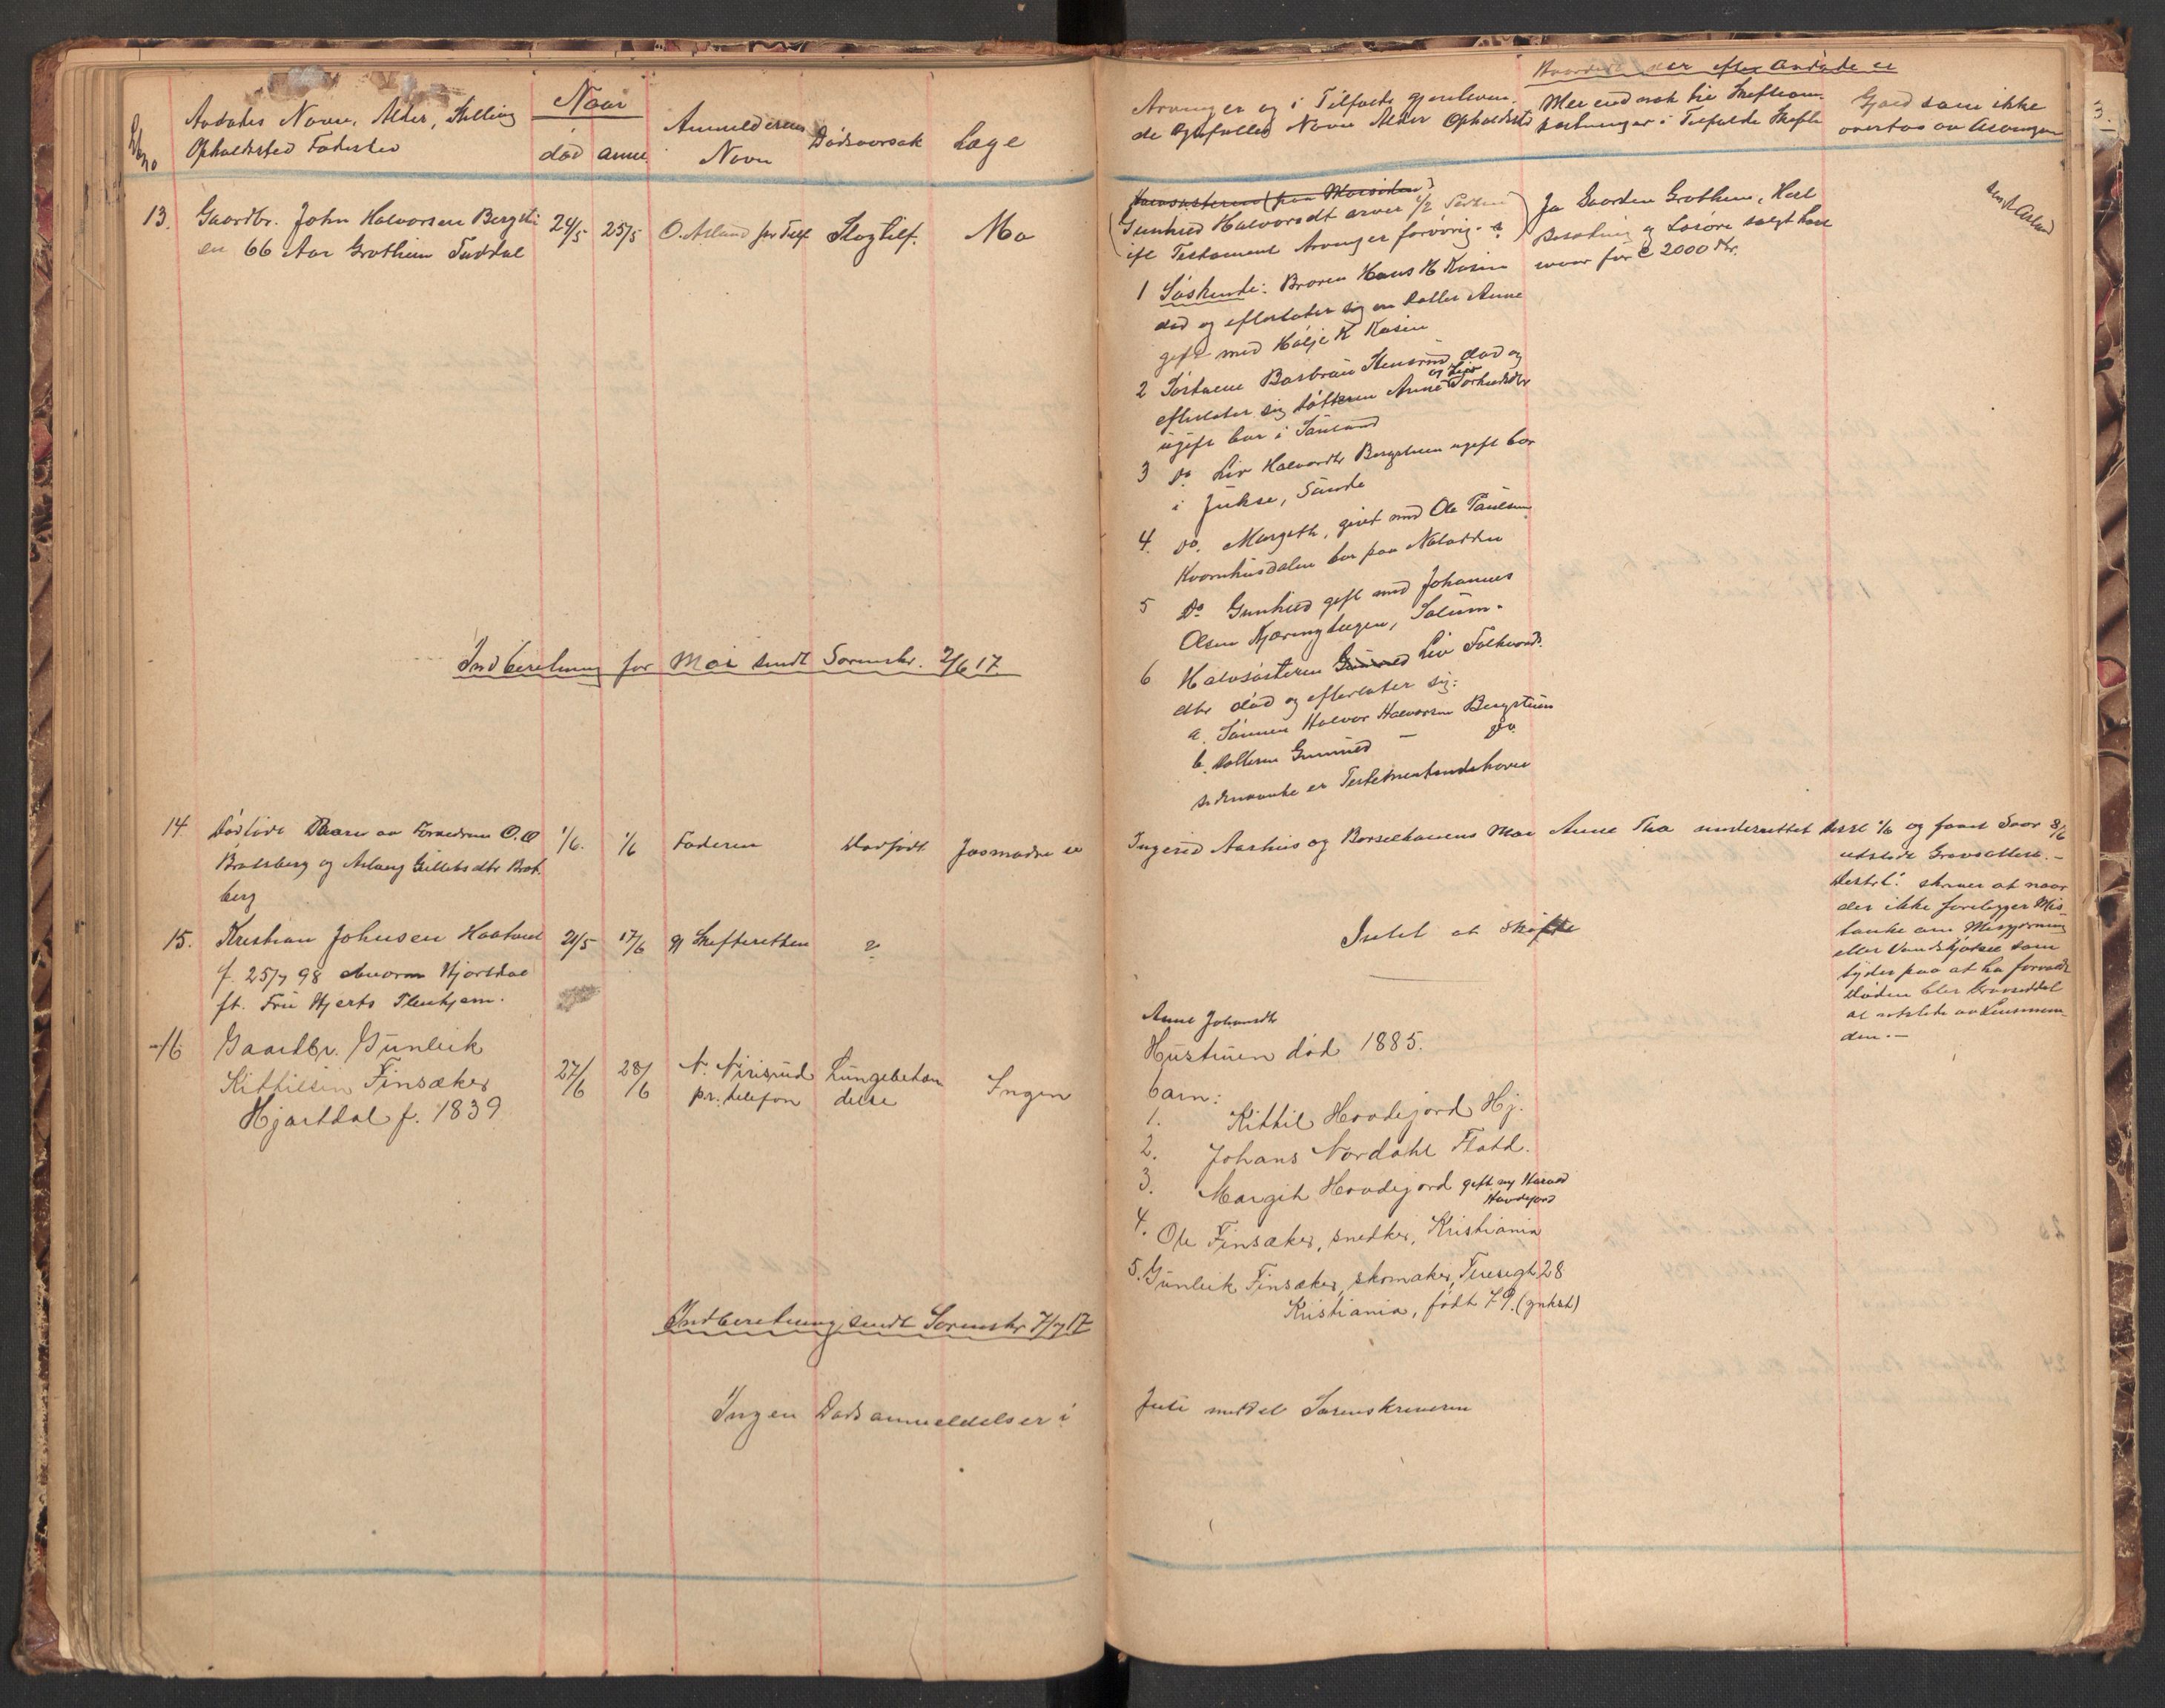 Lb. no
Avdødes Navn, Alder, Stilling
Opholdssted Fødested
Naar
død anm.
Anmelderens
Navn
Dødsaarsak
Læge
13. Gaardbr. John Halvorsen Bergstu
en 66 Aar Grotheim Tuddal
24/5 25/5 O. Asland per Telf. Slagtilf. Mo
Indberetning for Mai sendt Sorenskr. 2/6 17.
14. Dødfødt Barn av Formedrm O. O
Bratsberg og Aslaug Gulleksdtr Brat
berg
1/6. 1/6 Faderen Dødfødt Josmødre er
15. Kristian Johnsen Haatveit
f. 25/7 98 Hjartdal
ft. Fru Hjerts Pleiehjem.
21/5 17/6 Skifteretten ?
16 Gaardbr. Gunleik
Kittilsen Finsæker
Hjartdal f. 1839
27/6 28/6 N. Nirisrud
pr. telefon
Lungebetæn
delse
Ingen
Indberetning sendt Sorenskr 7/7 17
Ingen Dødsanmeldelser i
Arvinger og i Tilfælde gjenleven-
de Egtefælles Navn Alder Opholdssted
er efter Avdøde er
Mer end nok til Skifteom-
kostninger i Tilfælde Skifte
Gjæld som ikke
overtas av Arvingen
3.
Halvsøsteren (paa Morsiden)
Gunhild Halvorsdt arver 1/2 Parten
ifl Testament Arvinger forøvrig
1 Søskende: Broren Hans H Kasin
død og efterlater sig en Datter Anne
gift med Hølje K Kasin
2 Søsteren Barbrau Stensrud død og
efterlater sig døtteren Anne og Liv
ugift bor i Sauland
3 Do. Liv Halvordtr Bergstuen ugift bor
i Jukse, Saude
4. Do. Margith, givt med Ole Paulsen
Kvornhusdalen bor paa Notodden
5 Do Gunhild gift med Johannes
Olsen Kjæringteigen, Solum.
6 Halvsøsteren Gunnild Liv Folkvords
dtr død og efterlater sig:
a. Sønnen Halvor Halvorsen Bergstuen
b. Datteren Gunnild — do.
sidstnævnte er Testamentindehaver
Ja Gaarden Grotheim, Hest
Besætning og Løsøre solgt hans
svoger for 2000 Kr.
Ingerid Aarhus og Barselkonens Mor Anne underrettet Distl 1/6 og faaet Svar 8/6
utstede Gravsattest. —
Distrl. skriver at naar
der ikke foreligger Mis-
tanke om Misgjerning
eller Vanskjøtsel som
tyder paa at ha forvoldt
Døden blir Gravseddel
at utstede av Lensman-
den. —
Intet at skifte
Anne Johansdtr
Hustruen død 1885.
barn:
1. Kittil Hovdejord Hj.
2. Johans Nordahl Flatd.
3. Margit Hovdejord gift m/ Harald
Hovdejord
4. Ole Finsæker, snedker, Kristiania
5. Gunleik Finsæker, skomaker, Teresegt 28
Kristiania, født 79. (ynkst)
Juli meddel Sorenskriveren